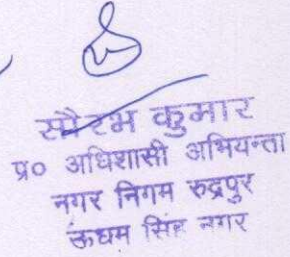 सौरभ कुमार
प्र० अधिशासी अभियन्ता
नगर निगम रुद्रपुर
ऊधम सिंह नगर